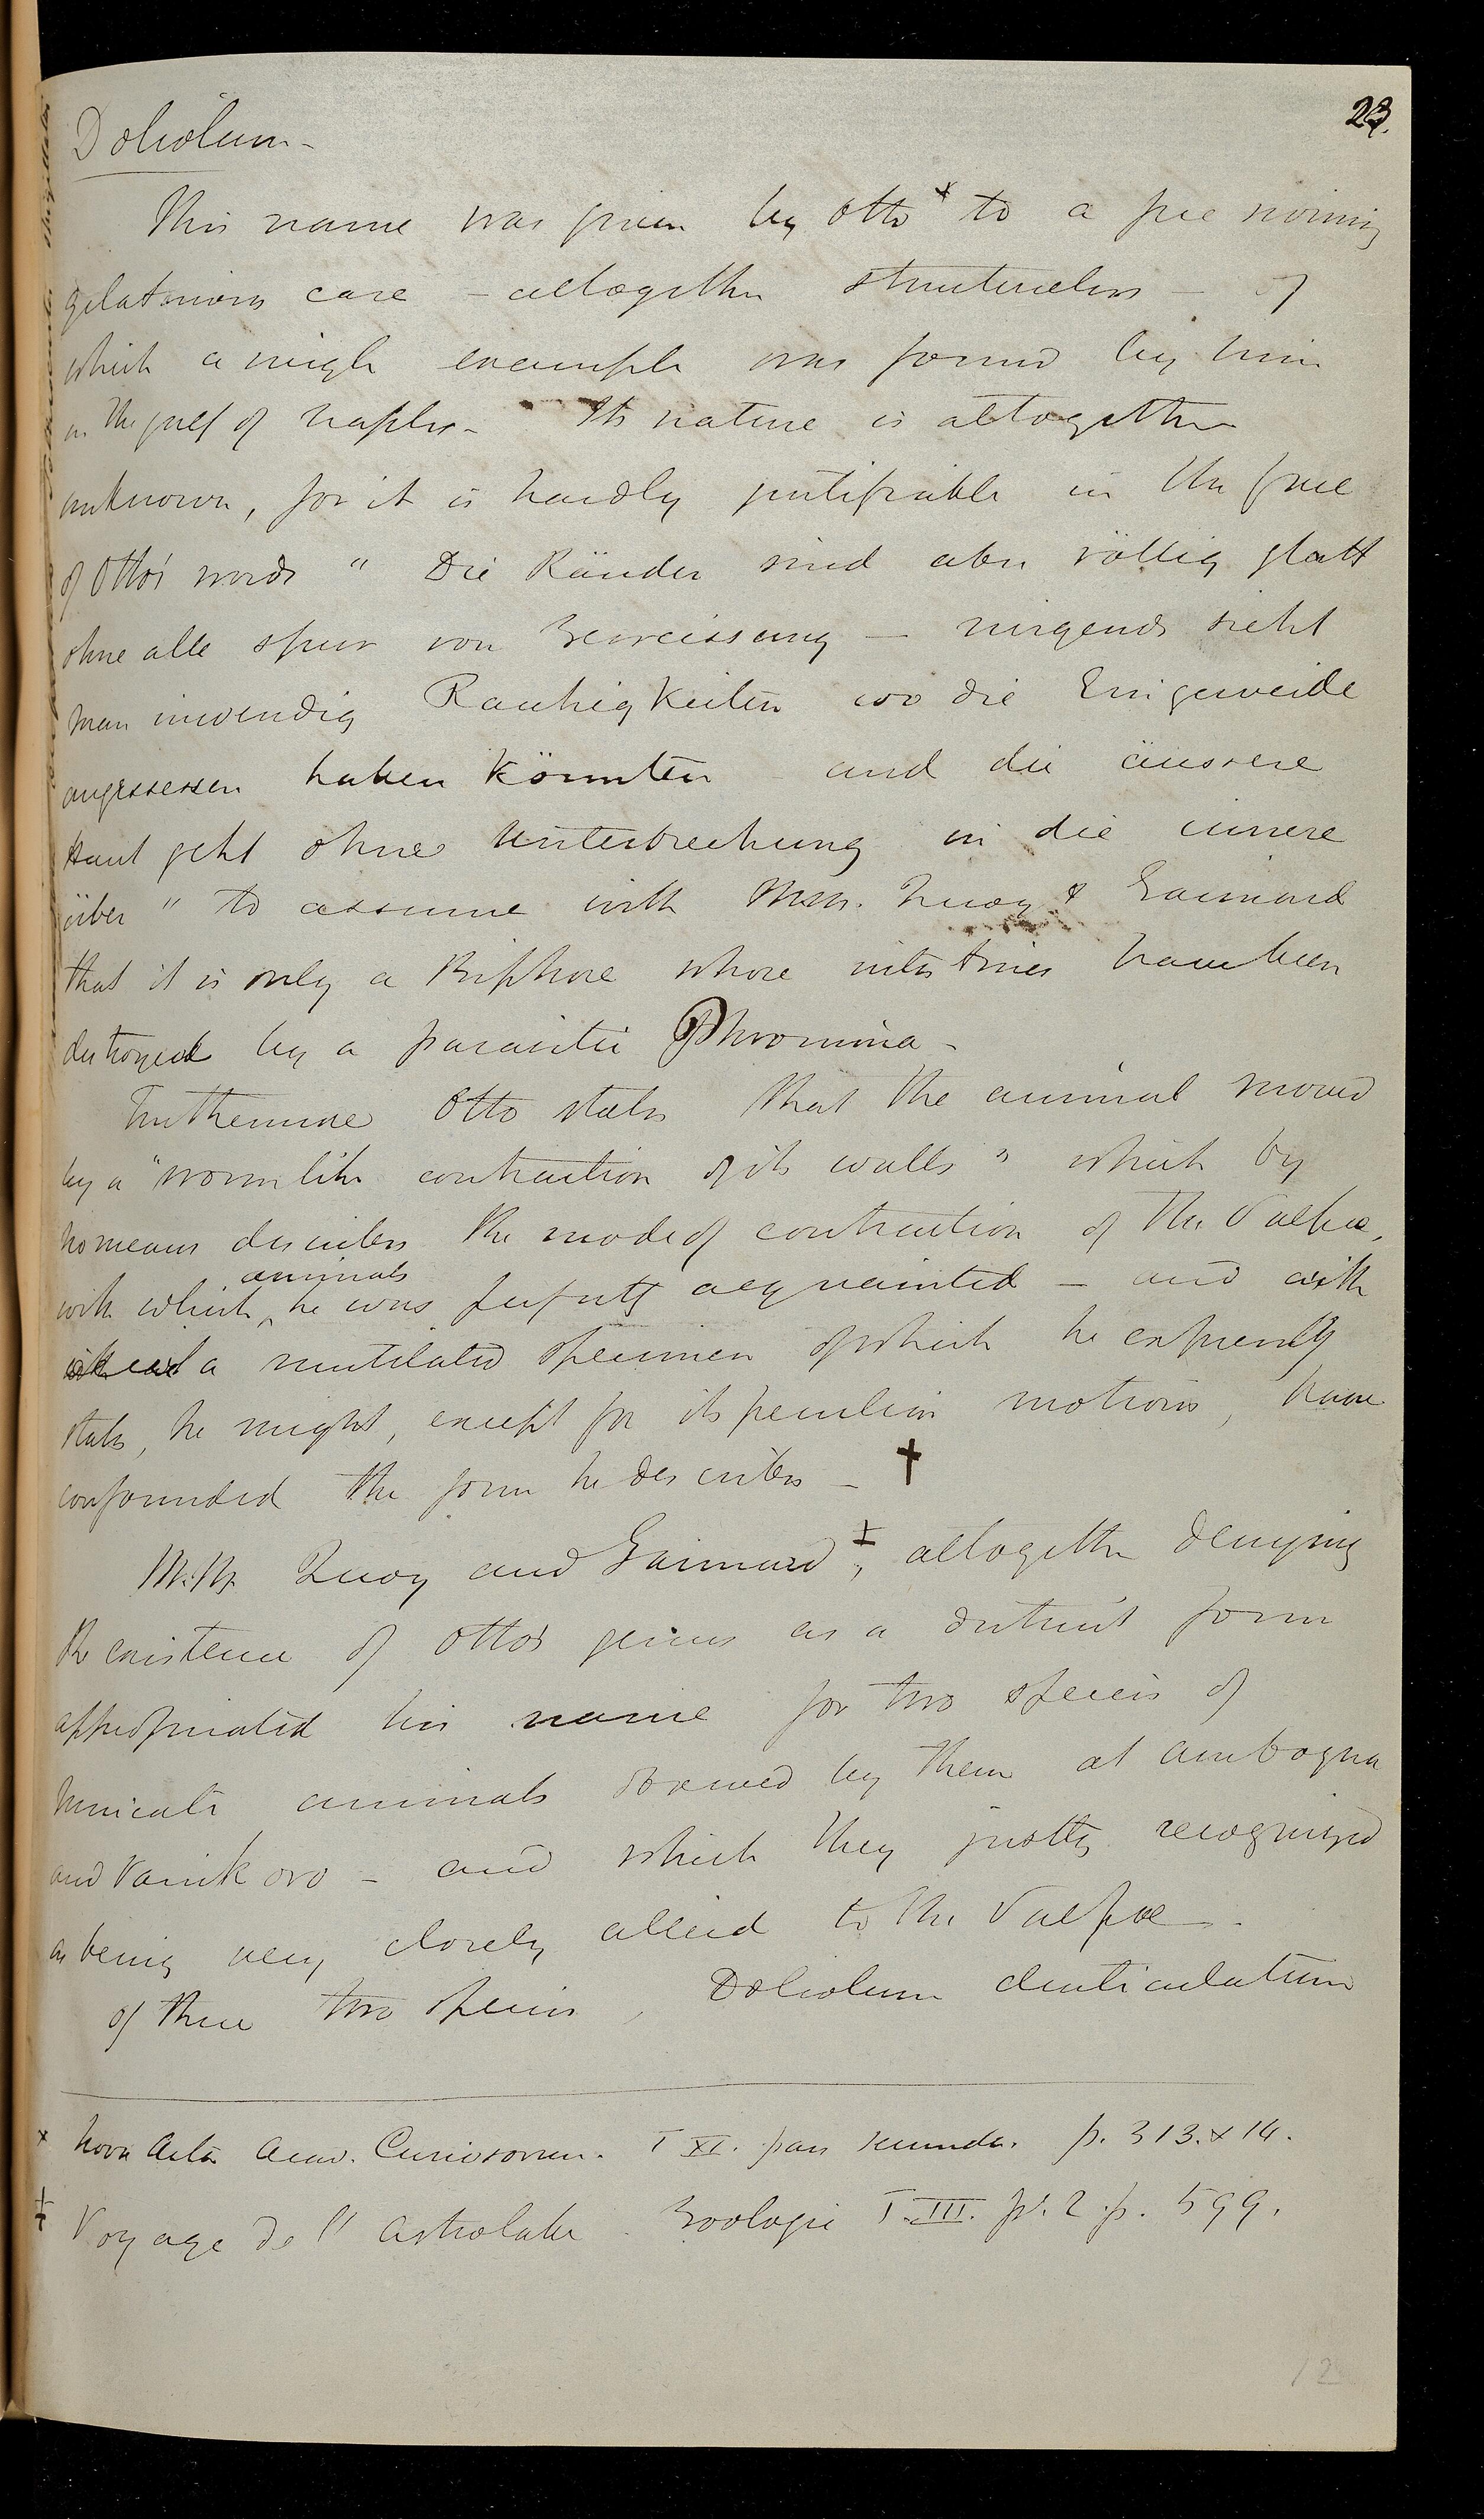 23.
Doliolum -
This name was given by Otto x to a free swimming
gelatinous case - altogether structureless - of
which a single example was found by him
in the gulf of Naples - Its nature is altogether
unknown, for it is hardly justifiable in the face
of Otto's words " Die Ränder sind aber völlig glatt
ohne alle spur von Zerreissung - nirgends sieht
man inwendig Rauhigkeiten wo die Eingeweide
angesessen haben könnten - und die äussere
Haut geht ohne Unterbrechung in die innere
über " to assume with MM. Quoy & Gaimard
that it is only a Biphore whose intestines have been
destroyed by a parasitic Phronima -
Furthermore Otto states that the animal moved
by a "wormlike contraction of its walls" which by
no means describes the mode of contraction of the Salpæ,
animals
with which ^ he was perfectly acquainted - and with
a mutilated specimen of which he expressly
states, he might, except for its peculiar motions, have
confounded the form he describes - †
M.M. Quoy and Gaimard ‡, altogether denying
the existence of Otto's genus as a distinct form
appropriated his name for two species of
tunicate animals observed by them at Amboyna
and Vanikoro - and which they justly recognized
as being very closely allied to the Salpæ -
Of these two species, Doliolum denticulatum
x Nova Acta Acad. Curiosorum. T XI. pars secunda. p. 313. & 14.
‡ Voyage de l'Astrolabe. Zoologie T. III. pt. 2 p. 599.
12